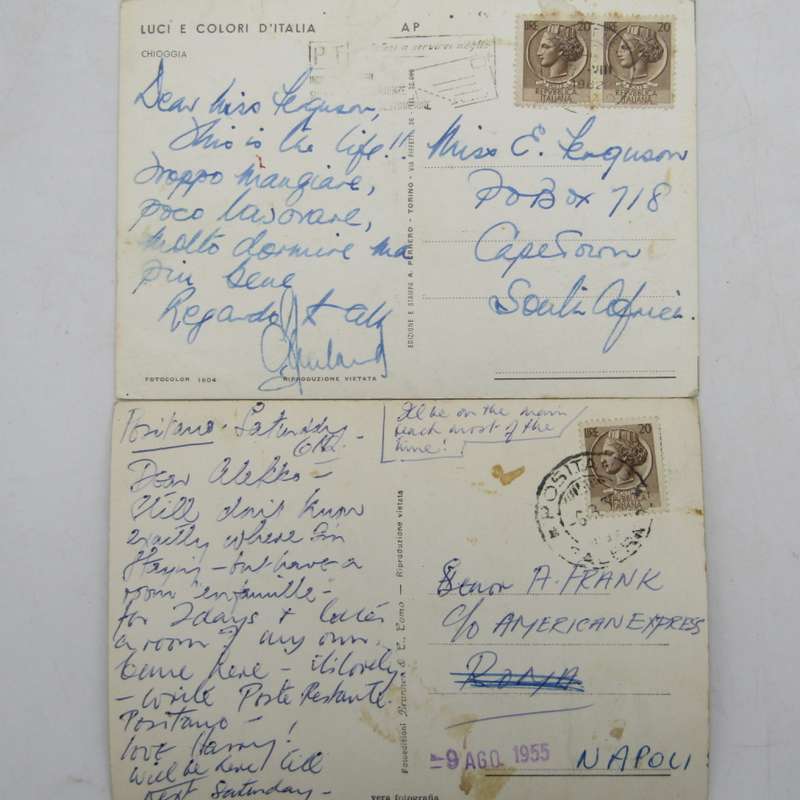 LUCI E COLORI D'ITALIA
AP
CHIOGGIA
LIRE 20
REPVBBLICA
ITALIANA
20
REPVBBLICA
ITALIANA
Dear Miss Ferguson,
This is the life!!
Troppo mangiare,
poco lavorare,
molto dormire ma
piu bene
Regards to all
Miss E. Ferguson
PO Box 718
Cape Town
South Africa.
EDIZIONE E STAMPA A. PERRERO - TORINO - VIA
FOTOCOLOR 1604
RIPRODUZIONE VIETATA
Positano - Saturday
6th -
I'll be on the main
beach most of the
time!
Dear Alekko -
Still don't know
exactly where I'm
staying - but have a
room "en famille" -
for 2 days & later
a room of my own.
Come here - it's lovely
- write Poste Restante.
Positano -
love Harry!
Will be here till
next Saturday -
LIRE 20
REPVBBLICA
ITALIANA
POSITANO
Senor A. FRANK
C/o AMERICAN EXPRESS
ROMA
NAPOLI
-9 AGO. 1955
Riproduzione vietata
vera fotografia